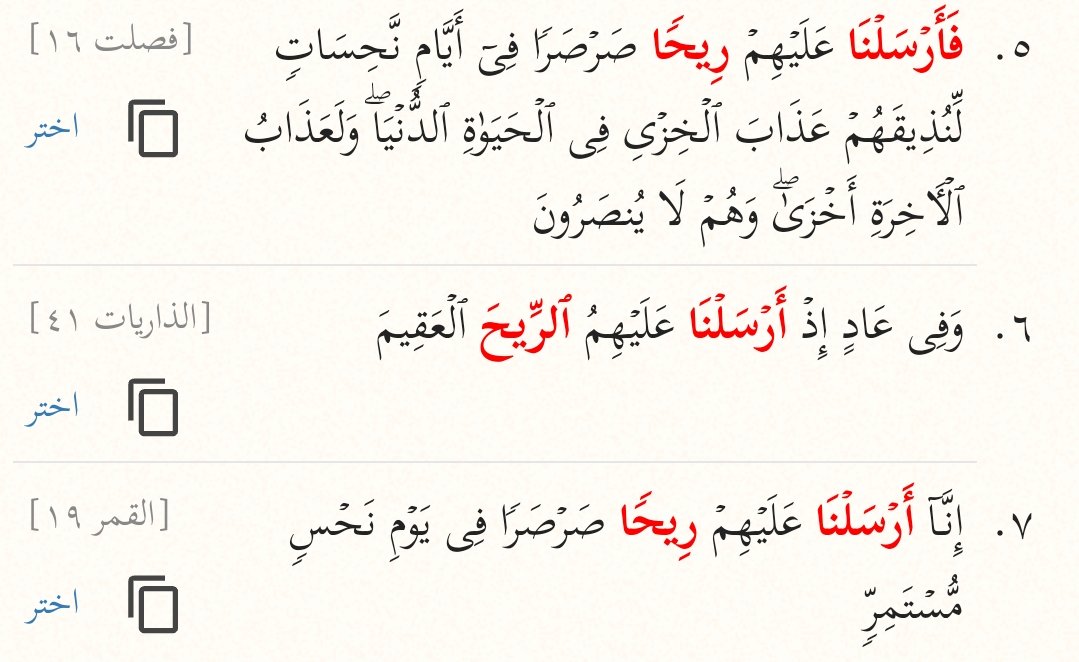 ٥. فَأَرْسَلْنَا عَلَيْهِمْ رِيحًا صَرْصَرًا فِىٓ أَيَّامٍ نَّحِسَاتٍ [فصلت ١٦]
لِّنُذِيقَهُمْ عَذَابَ ٱلْخِزْىِ فِى ٱلْحَيَوٰةِ ٱلدُّنْيَا ۖ وَلَعَذَابُ اختر
ٱلْءَاخِرَةِ أَخْزَىٰ ۖ وَهُمْ لَا يُنصَرُونَ
٦. وَفِى عَادٍ إِذْ أَرْسَلْنَا عَلَيْهِمُ ٱلرِّيحَ ٱلْعَقِيمَ [الذاريات ٤١]
اختر
٧. إِنَّآ أَرْسَلْنَا عَلَيْهِمْ رِيحًا صَرْصَرًا فِى يَوْمِ نَحْسٍ [القمر ١٩]
مُّسْتَمِرٍّ
اختر